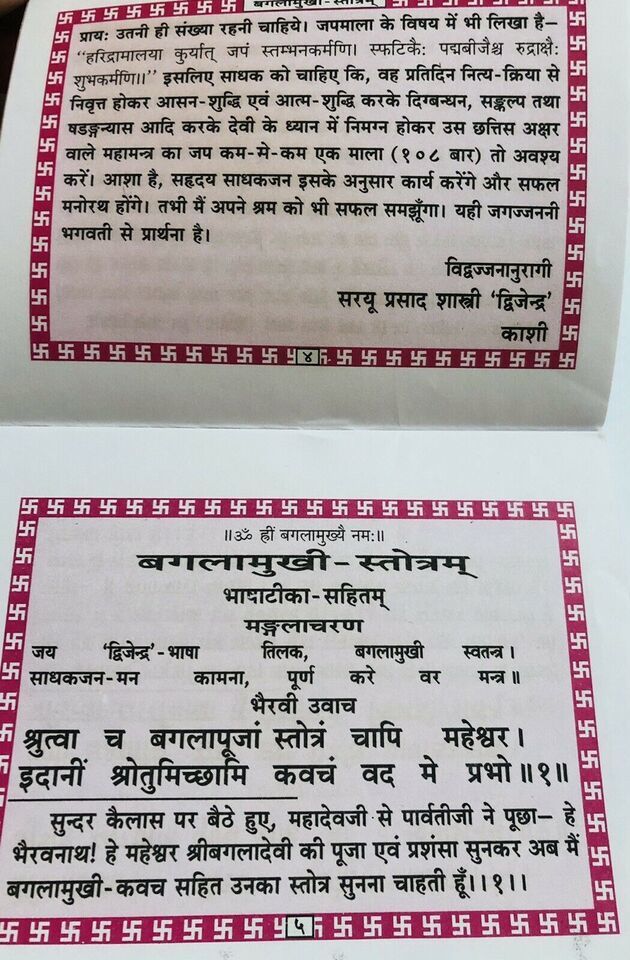 बगलामुखी-स्तोत्रम्
प्रायः उतनी ही संख्या रहनी चाहिये। जपमाला के विषय में भी लिखा है–
‘‘हरिद्रामालया कुर्यात् जपं स्तम्भनकर्मणि। स्फटिकैः पद्मबीजैश्च रुद्राक्षैः
शुभकर्मणि॥’’ इसलिए साधक को चाहिए कि, वह प्रतिदिन नित्य-क्रिया से
निवृत्त होकर आसन-शुद्धि एवं आत्म-शुद्धि करके दिग्बन्धन, सङ्कल्प तथा
षडङ्गन्यास आदि करके देवी के ध्यान में निमग्न होकर उस छत्तिस अक्षर
वाले महामन्त्र का जप कम-मे-कम एक माला (१०८ बार) तो अवश्य
करें। आशा है, सहृदय साधकजन इसके अनुसार कार्य करेंगे और सफल
मनोरथ होंगे। तभी मैं अपने श्रम को भी सफल समझूँगा। यही जगज्जननी
भगवती से प्रार्थना है।
विद्वज्जनानुरागी
सरयू प्रसाद शास्त्री ‘द्विजेन्द्र’
काशी
४
॥ॐ ह्रीं बगलामुख्यै नमः॥
बगलामुखी-स्तोत्रम्
भाषाटीका-सहितम्
मङ्गलाचरण
जय ‘द्विजेन्द्र’-भाषा तिलक, बगलामुखी स्वतन्त्र।
साधकजन-मन कामना, पूर्ण करे वर मन्त्र॥
भैरवी उवाच
श्रुत्वा च बगलापूजां स्तोत्रं चापि महेश्वर।
इदानीं श्रोतुमिच्छामि कवचं वद मे प्रभो॥१॥
सुन्दर कैलास पर बैठे हुए, महादेवजी से पार्वतीजी ने पूछा– हे
भैरवनाथ! हे महेश्वर श्रीबगलादेवी की पूजा एवं प्रशंसा सुनकर अब मैं
बगलामुखी-कवच सहित उनका स्तोत्र सुनना चाहती हूँ।।१।।
५